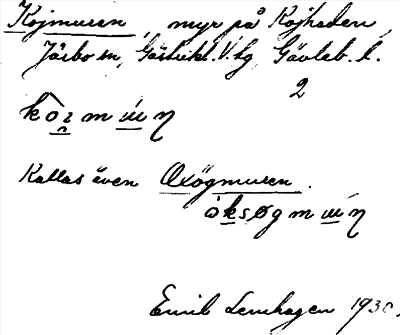 Kojmuren, myr på Kojheden,
Järbo sn, Gästrikl. V. hg Gävleb. l.
2
Kallas även Oxögmuren.
óksøgmuń
Emil Lenhagen 1930.